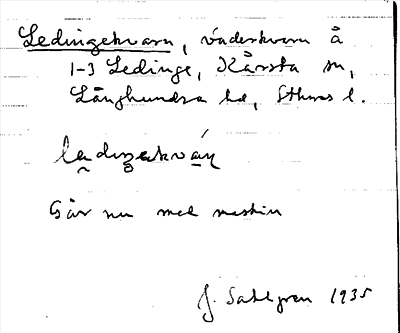 Ledingekvarn, väderkvarn å
1-3 Ledinge, Kårsta sn,
Långhundra hd, Sthms l.
ledingakván
Går nu med maskin
J. Sahlgren 1935